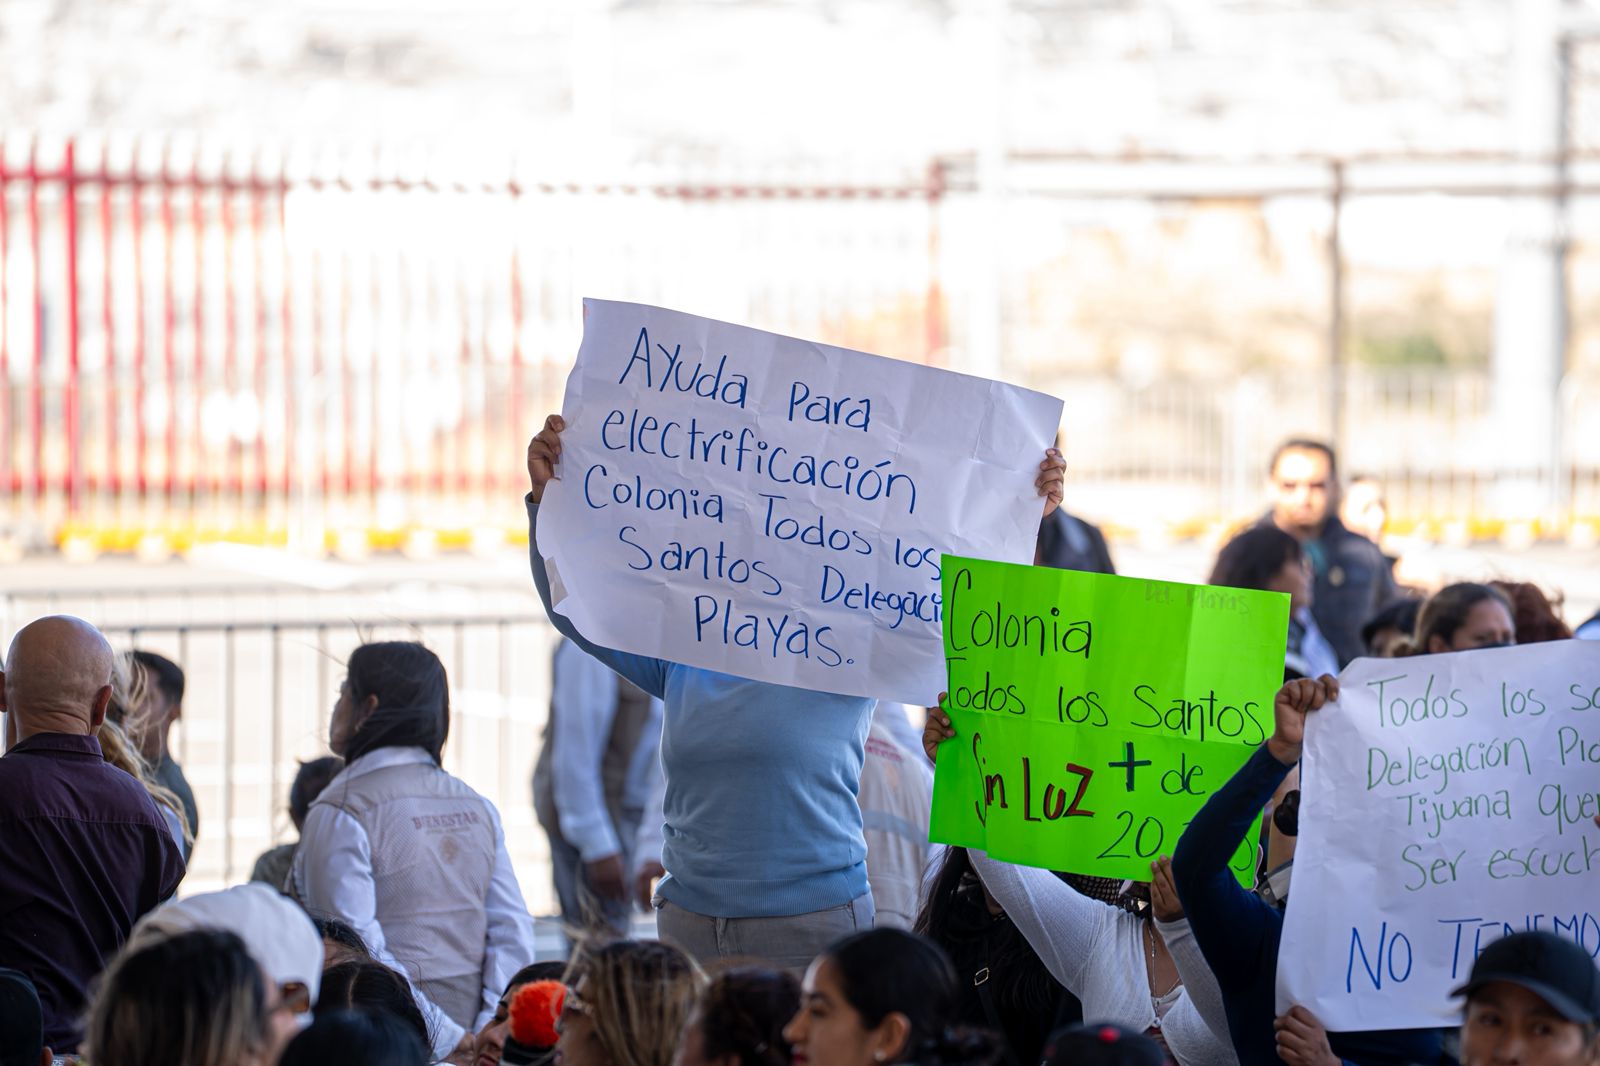 Ayuda para
electrificación
Colonia Todos los
Santos Delegaci
Playas.
Del. Playas
Colonia
Todos los Santos
Sin Luz + de
20
Todos los
Delegación
Tijuana
Ser
NO TENEMO
BIENESTAR